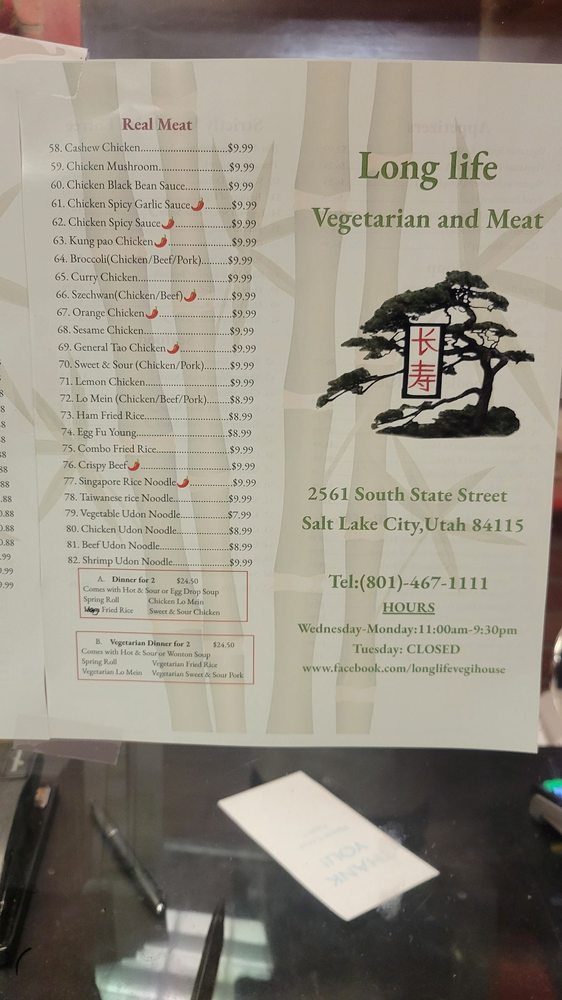 Real Meat
58. Cashew Chicken..............................$9.99
59. Chicken Mushroom.......................$9.99
60. Chicken Black Bean Sauce..............$9.99
61. Chicken Spicy Garlic Sauce.........$9.99
62. Chicken Spicy Sauce.....................$9.99
63. Kung pao Chicken.......................$9.99
64. Broccoli(Chicken/Beef/Pork)........$9.99
65. Curry Chicken..............................$9.99
66. Szechwan(Chicken/Beef)............$9.99
67. Orange Chicken..........................$9.99
68. Sesame Chicken.............................$9.99
69. General Tao Chicken...................$9.99
70. Sweet & Sour (Chicken/Pork).........$9.99
71. Lemon Chicken.............................$9.99
72. Lo Mein (Chicken/Beef/Pork).......$8.99
73. Ham Fried Rice.............................$8.99
74. Egg Fu Young................................$8.99
75. Combo Fried Rice..........................$9.99
76. Crispy Beef..................................$9.99
77. Singapore Rice Noodle................$9.99
78. Taiwanese rice Noodle...................$9.99
79. Vegetable Udon Noodle................$7.99
80. Chicken Udon Noodle..................$8.99
81. Beef Udon Noodle.........................$8.99
82. Shrimp Udon Noodle....................$9.99
A. Dinner for 2 $24.50
Comes with Hot & Sour or Egg Drop Soup
Spring Roll Chicken Lo Mein
Fried Rice Sweet & Sour Chicken
B. Vegetarian Dinner for 2 $24.50
Comes with Hot & Sour or Wonton Soup
Spring Roll Vegetarian Fried Rice
Vegetarian Lo Mein Vegetarian Sweet & Sour Pork
Long life
Vegetarian and Meat
长
寿
2561 South State Street
Salt Lake City,Utah 84115
Tel:(801)-467-1111
HOURS
Wednesday-Monday:11:00am-9:30pm
Tuesday: CLOSED
www.facebook.com/longlifevegihouse
THANK
YOU!